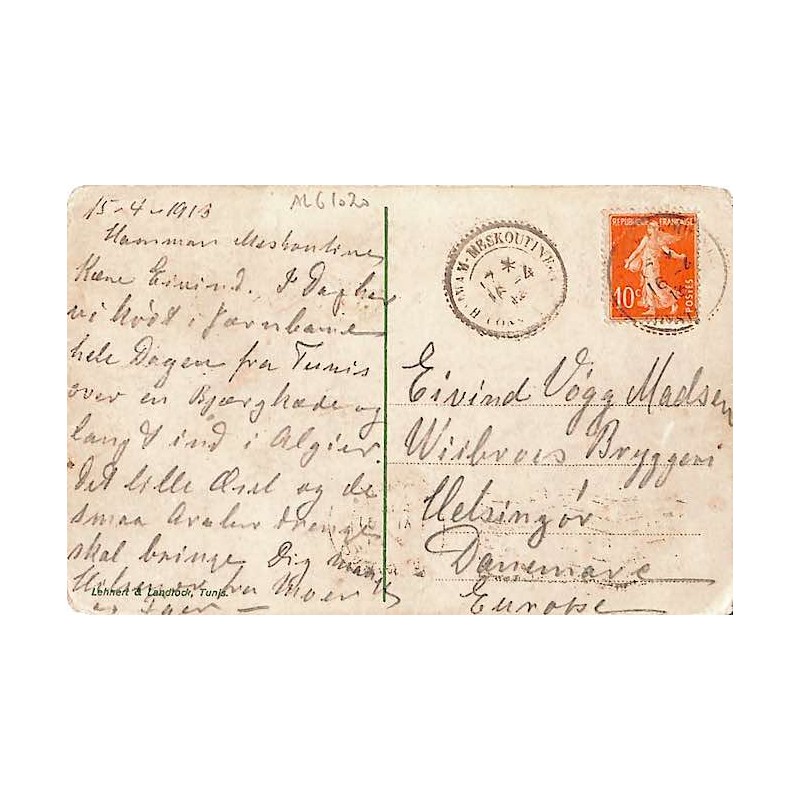 15-4-1913
ALG1020
Hammam Meskoutine
Kære Eivind. I Dag har
vi kørt i Jærnbane
hele Dagen fra Tunis
over en Bjærgkæde og
langt ind i Algier.
Det lille Æsel og de
smaa Araber drenge
skal bringe Dig mange
Hilsener fra Moer
og Faer —
Lehnert & Landrock, Tunis.
HAMMAM-MESKOUTINE
REPUBLIQUE FRANÇAISE
10c
POSTES
Eivind Vögg Madsen
Wiibroes Bryggeri
Helsingör
Danemarc
Europe